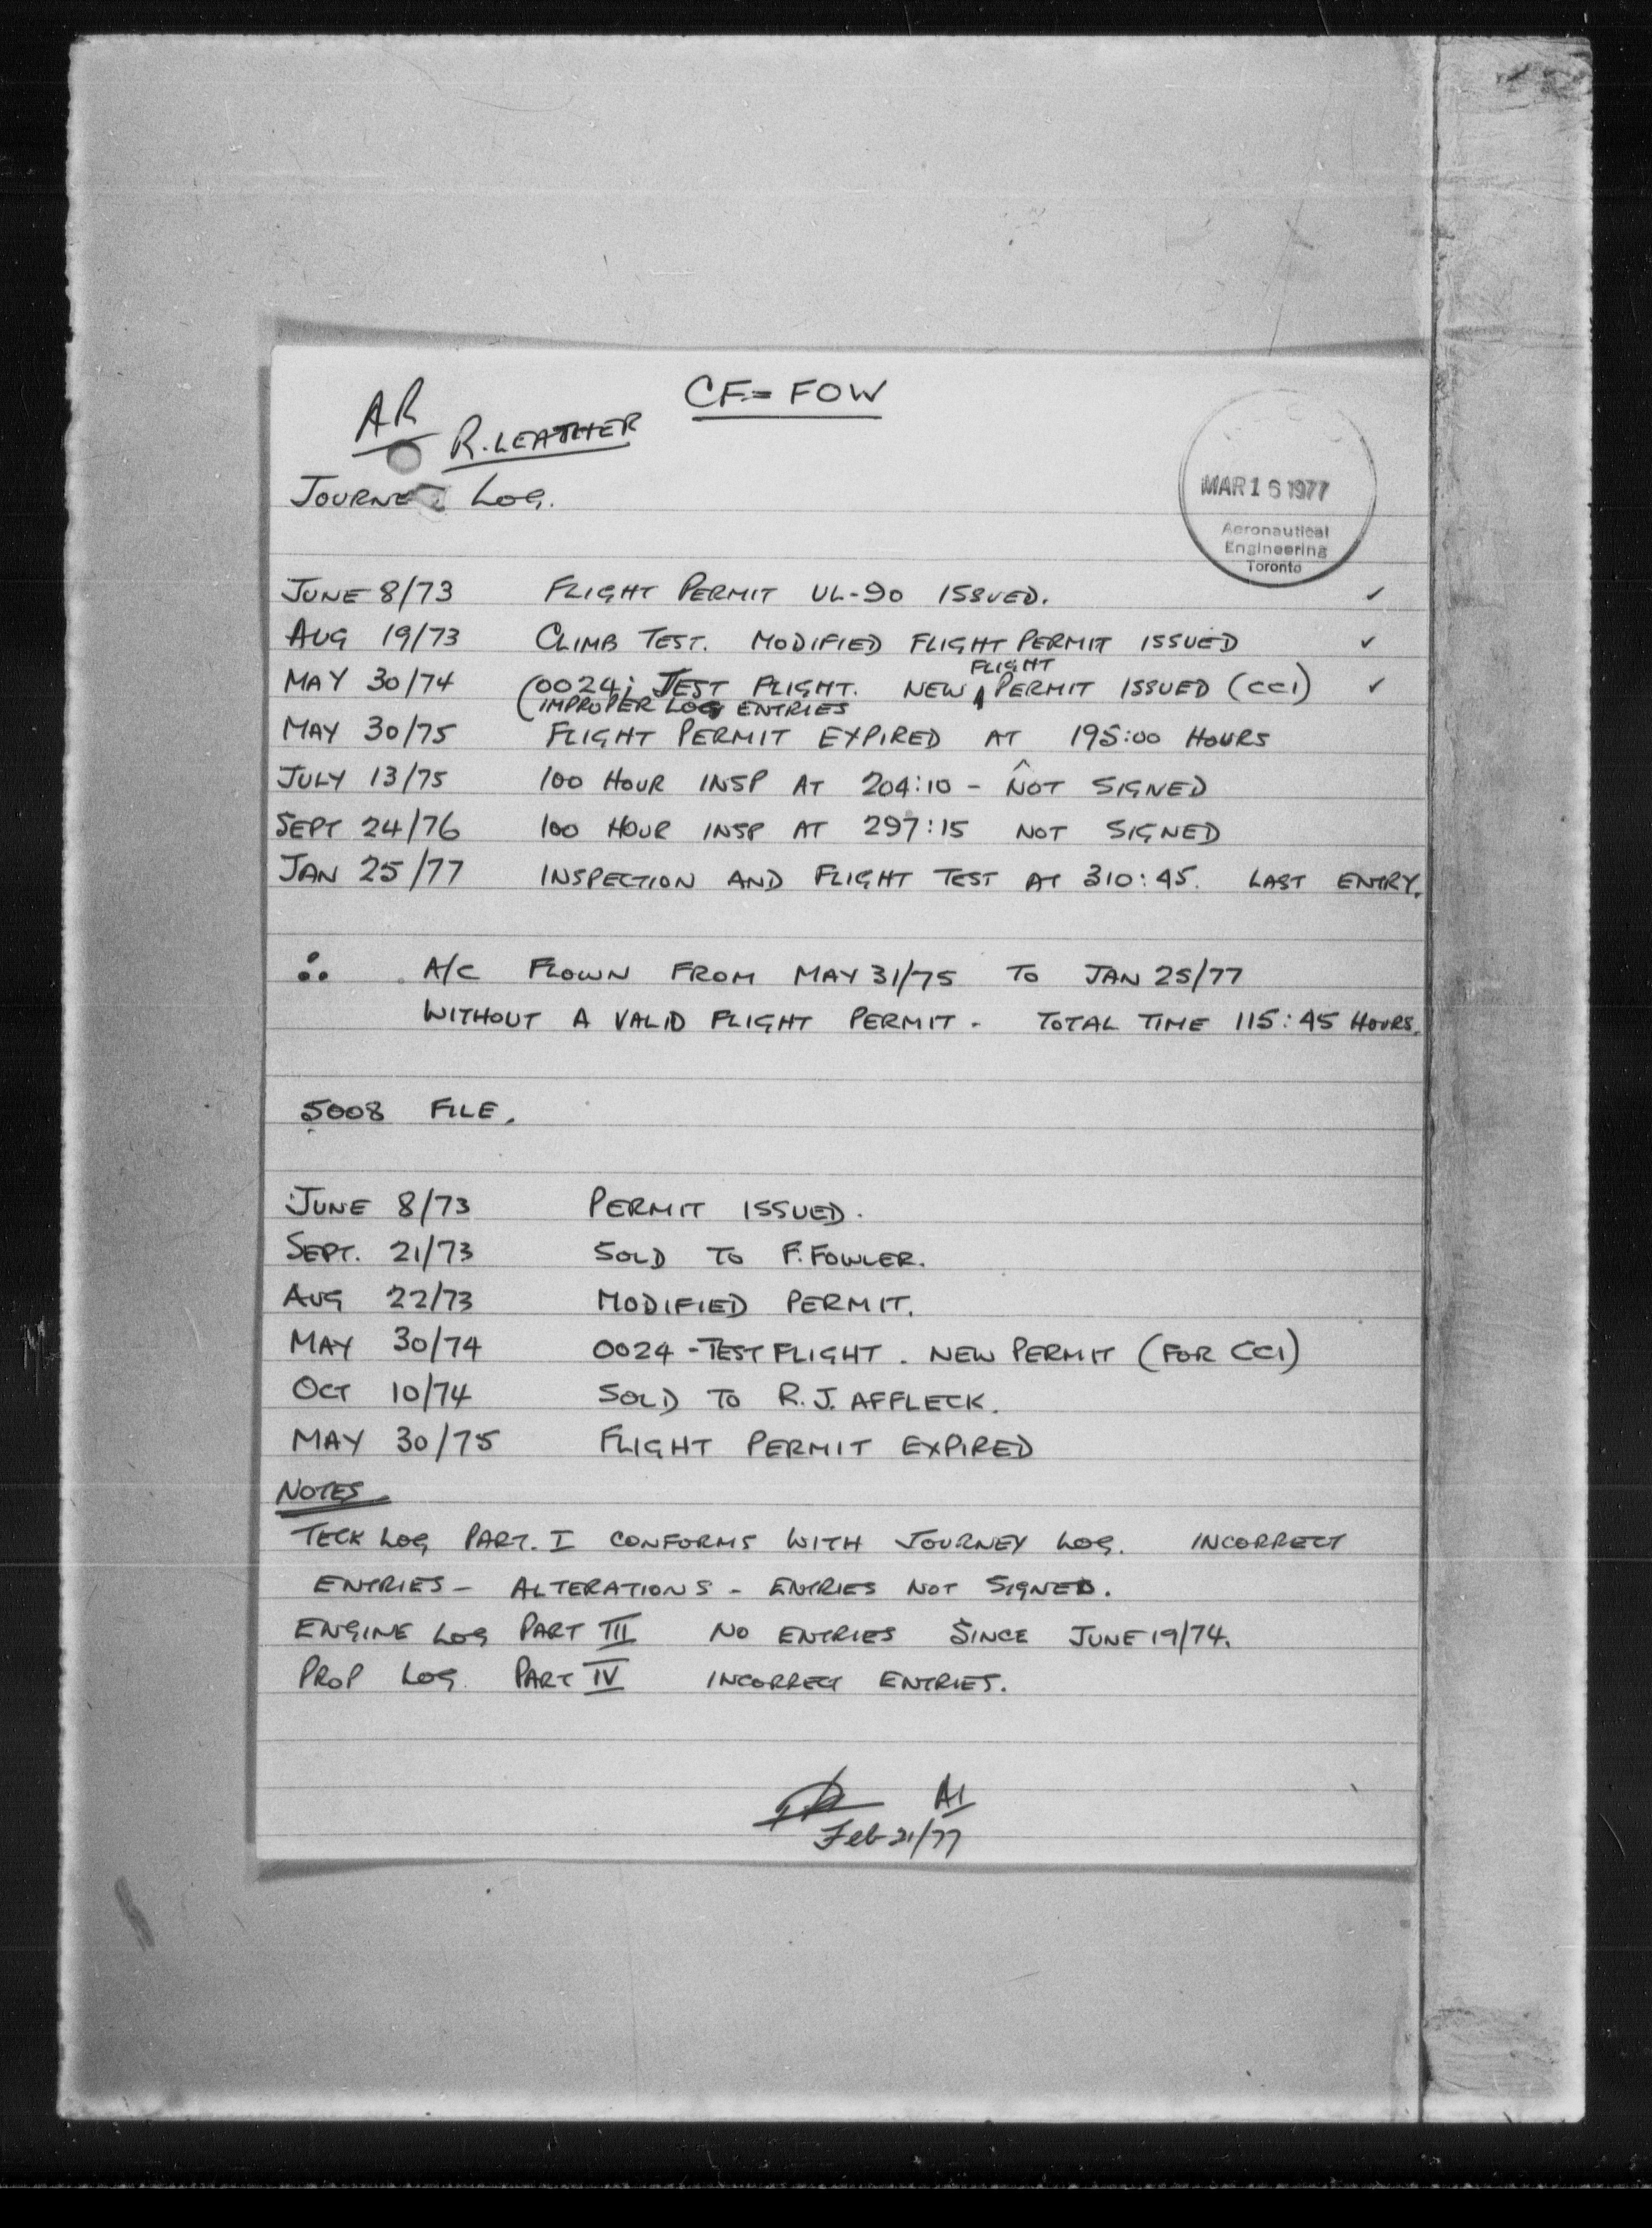 CF-FOW
AR
R. LEATHER
JOURNEY LOG.
MAR 16 1977
Aeronautical
Engineering
Toronto
JUNE 8/73 FLIGHT PERMIT UL-90 ISSUED. ✓
AUG 19/73 CLIMB TEST. MODIFIED FLIGHT PERMIT ISSUED ✓
FLIGHT
MAY 30/74 (0024; TEST FLIGHT. NEW PERMIT ISSUED (CCI) ✓
(IMPROPER LOG ENTRIES
MAY 30/75 FLIGHT PERMIT EXPIRED AT 195:00 HOURS
JULY 13/75 100 HOUR INSP AT 204:10 - NOT SIGNED
SEPT 24/76 100 HOUR INSP AT 297:15 NOT SIGNED
JAN 25/77 INSPECTION AND FLIGHT TEST AT 310:45. LAST ENTRY.
∴ A/C FLOWN FROM MAY 31/75 TO JAN 25/77
WITHOUT A VALID FLIGHT PERMIT - TOTAL TIME 115:45 HOURS.
5008 FILE.
JUNE 8/73 PERMIT ISSUED.
SEPT. 21/73 SOLD TO F. FOWLER.
AUG 22/73 MODIFIED PERMIT.
MAY 30/74 0024 - TEST FLIGHT. NEW PERMIT (FOR CCI)
OCT 10/74 SOLD TO R.J. AFFLECK.
MAY 30/75 FLIGHT PERMIT EXPIRED
NOTES
TECK LOG PART. I CONFORMS WITH JOURNEY LOG. INCORRECT
ENTRIES - ALTERATIONS - ENTRIES NOT SIGNED.
ENGINE LOG PART III NO ENTRIES SINCE JUNE 19/74.
PROP LOG PART IV INCORRECT ENTRIES.
AI
Feb 21/77